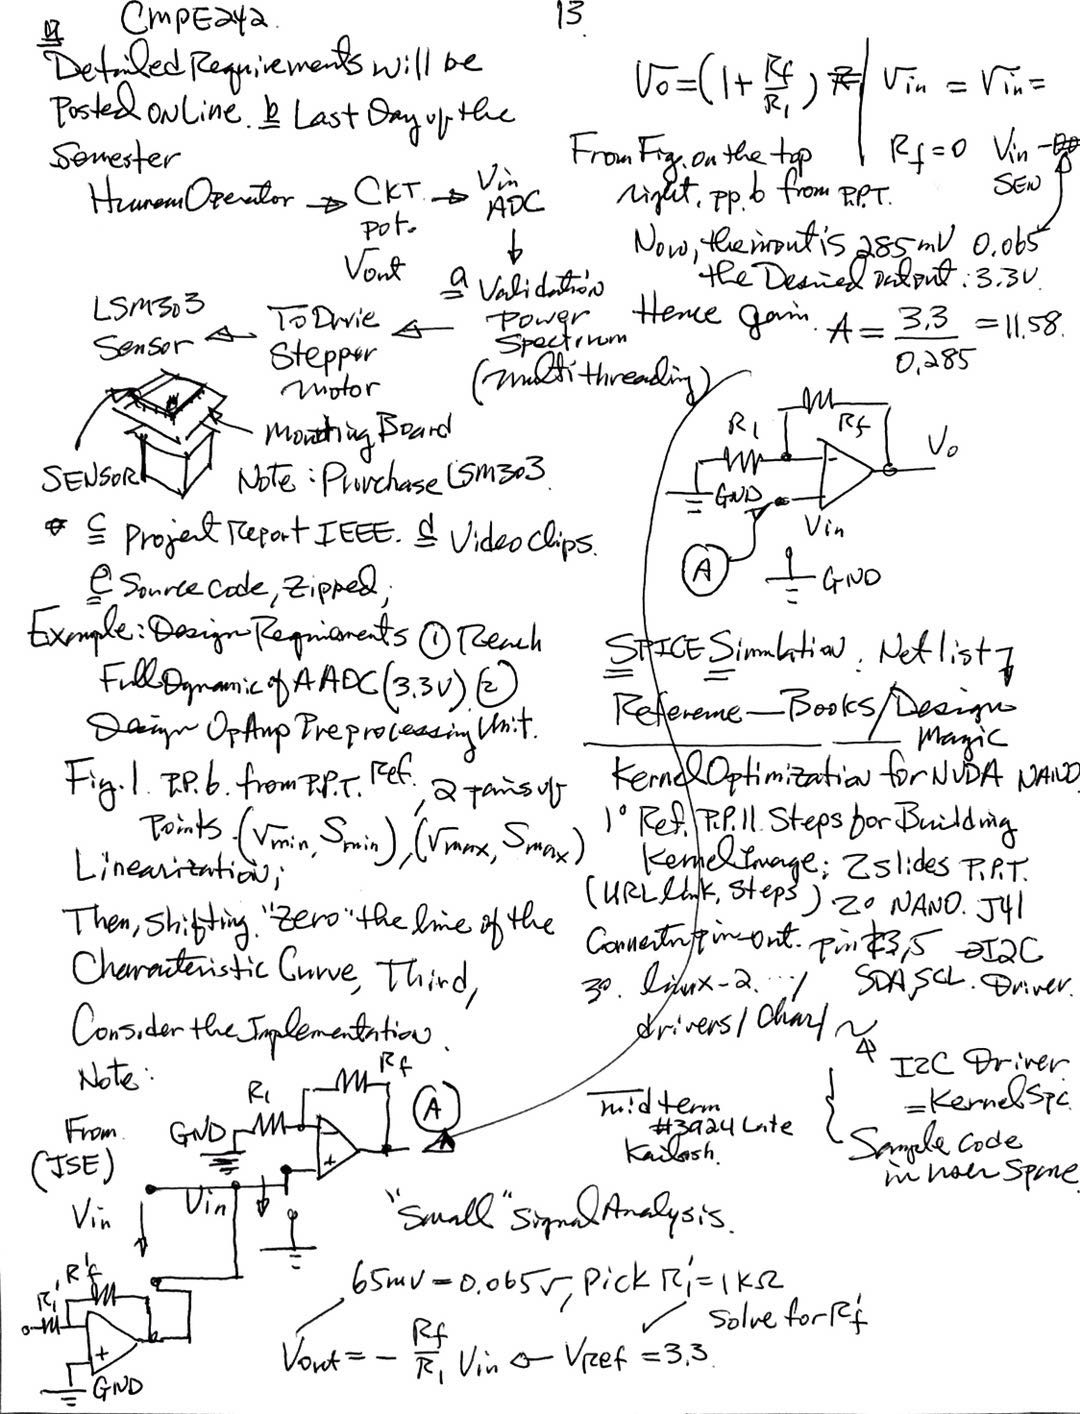 CMPE242.
13
a
Detailed Requirements will be
Posted ONLine. b Last Day of the
Semester
Human Operator → CKT. → Vin
ADC
pot.
Vout
a Validation
Power
Spectrum
(Multithreading)
To Drvie
Stepper
Motor
LSM303
Sensor
Mounting Board
SENSOR
Note: Purchase LSM303.
* c Project Report IEEE. d Video Clips.
e Source code, Zipped;
Example: Design Requirements ① Reach
Full Dynamic of A ADC (3.3V) ②
Design OpAmp Preprocessing Unit.
Fig.1. P.P.6. from P.P.T. Ref., 2 pairs of
Points. (Vmin, Smin), (Vmax, Smax)
Linearization;
Then, Shifting "Zero" the line of the
Characteristic Curve, Third,
Consider the Implementation.
Note:
R1
Rf
A
GND
From
(JSE)
+
Vin
Vin
"Small" Signal Analysis.
R'f
R1'
+
GND
65mV = 0.065V, Pick R1' = 1KΩ
Solve for R'f
Vout = - Rf/R1 Vin ← Vref = 3.3.
Vo = (1 + Rf/R1)
Vin = Vin =
Rf = 0 Vin -
SEN
From Fig. on the top
right, pp. 6 from P.P.T.
Now, the input is 285mV 0.065
the Desired output: 3.3V.
Hence gain. A = 3.3/0.285 = 11.58.
R1
Rf
Vo
GND
Vin
A
GND
SPICE Simulation. Netlist
Reference — Books/Design
Magic
Kernel Optimization for NVDA NANO
1° Ref. P.P.11. Steps for Building
Kernel Image; 2 slides P.P.T.
(URL link, Steps) 2° NANO. J41
Connector pin-out. pin #3,5 → I2C
SDA, SCL. Driver.
3°. linux-2. .../
drivers/char/
I2C Driver
= Kernel Spc.
Sample code
in user Space.
midterm
#3924 Late
Kailash.